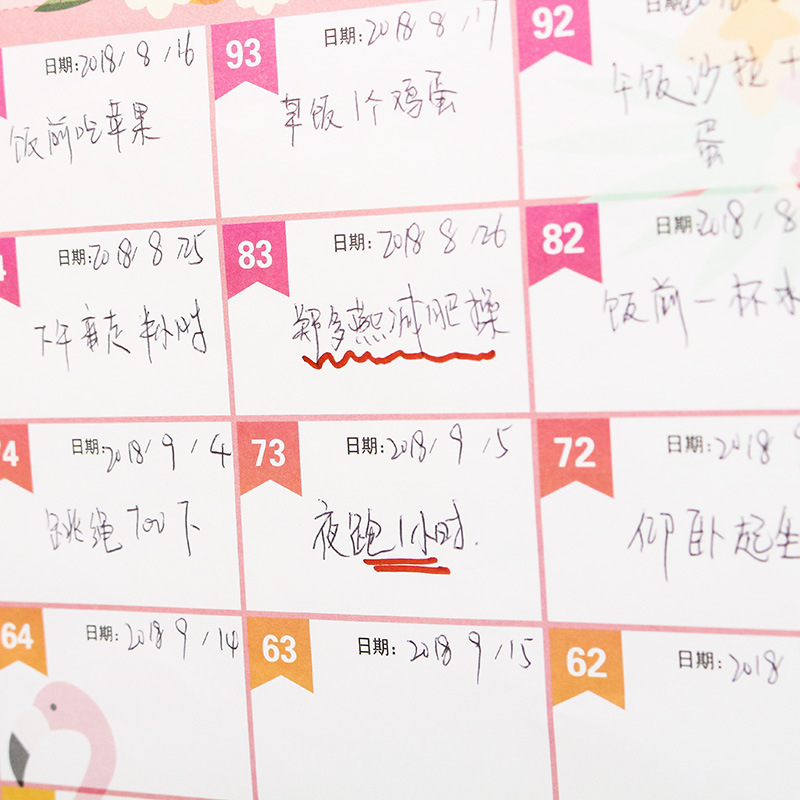 日期:2018/8/16
饭前吃苹果
93
日期:2018 8/17
早饭1个鸡蛋
92
日期:2018
午饭沙拉+
蛋
4
日期:2018/8/25
下午竞走半小时
83
日期:2018 8/26
郑多燕减肥操
82
日期:2018/8
饭前一杯水
74
日期:2018/9/4
跳绳700下
73
日期:2018/9/5
夜跑1小时.
72
日期:2018 9
仰卧起坐
64
日期:2018 9/14
63
日期:2018 9/15
62
日期:2018